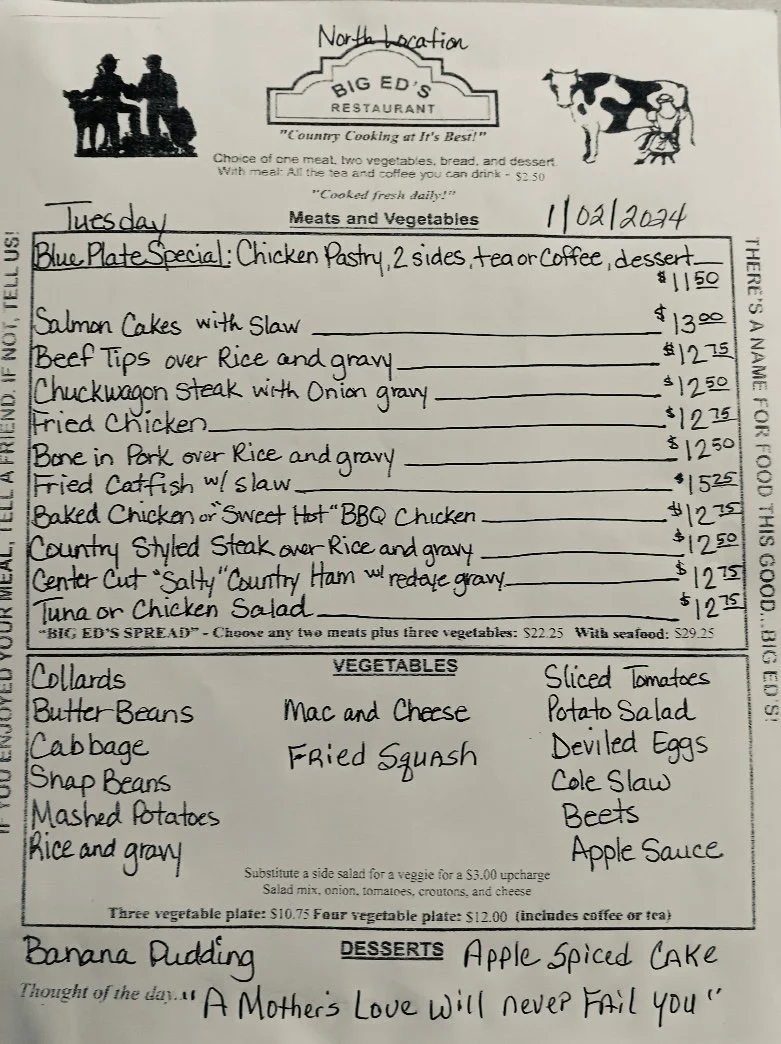 North Location
BIG ED'S
RESTAURANT
"Country Cooking at It's Best!"
Choice of one meat, two vegetables, bread, and dessert
With meal: All the tea and coffee you can drink - $2.50
"Cooked fresh daily!"
Tuesday Meats and Vegetables 1/02/2024
Blue Plate Special: Chicken Pastry, 2 sides, tea or Coffee, dessert
$11 50
Salmon Cakes with Slaw $13 00
Beef Tips over Rice and gravy $12 75
Chuckwagon Steak with Onion gravy $12 50
Fried Chicken $12 75
Bone in Pork over Rice and gravy $12 50
Fried Catfish w/ slaw $15 25
Baked Chicken or "Sweet Hot" BBQ Chicken $12 75
Country Styled Steak over Rice and gravy $12 50
Center Cut "Salty" Country Ham w/ redeye gravy $12 75
Tuna or Chicken Salad $12 75
"BIG ED'S SPREAD" - Choose any two meats plus three vegetables: $22.25 With seafood: $29.25
VEGETABLES
Collards
Butter Beans
Cabbage
Snap Beans
Mashed Potatoes
Rice and gravy
Mac and Cheese
Fried Squash
Sliced Tomatoes
Potato Salad
Deviled Eggs
Cole Slaw
Beets
Apple Sauce
Substitute a side salad for a veggie for a $3.00 upcharge
Salad mix, onion, tomatoes, croutons, and cheese
Three vegetable plate: $10.75 Four vegetable plate: $12.00 (includes coffee or tea)
Banana Pudding DESSERTS Apple Spiced CAKe
Thought of the day.. "A Mother's Love will never FAil you"
IF YOU ENJOYED YOUR MEAL, TELL A FRIEND. IF NOT, TELL US!
THERE'S A NAME FOR FOOD THIS GOOD...BIG ED'S!